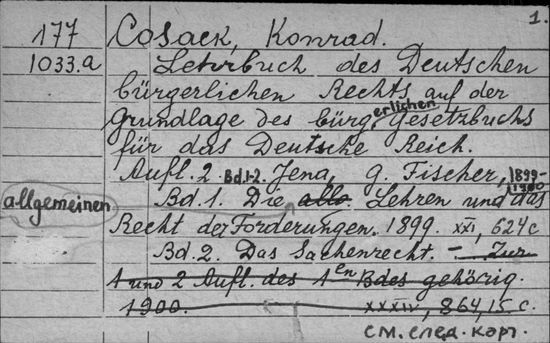 1.
177 Cosack, Konrad.
1033.a Lehrbuch des Deutschen
bürgerlichen Rechts auf der
Grundlage des bürgerlichen Gesetzbuchs
für das Deutsche Reich.
Aufl. 2. Bd.1-2. Jena, G. Fischer, 1899-1900
allgemeinen Bd. 1. Die allg. Lehren und das
Recht der Forderungen. 1899. XXI, 624 c
Bd. 2. Das Sachenrecht. - Zur
1 und 2 Aufl. des 1en Bdes gehörig.
1900. XXXIV, 864, 15. c.
см. след. карт.